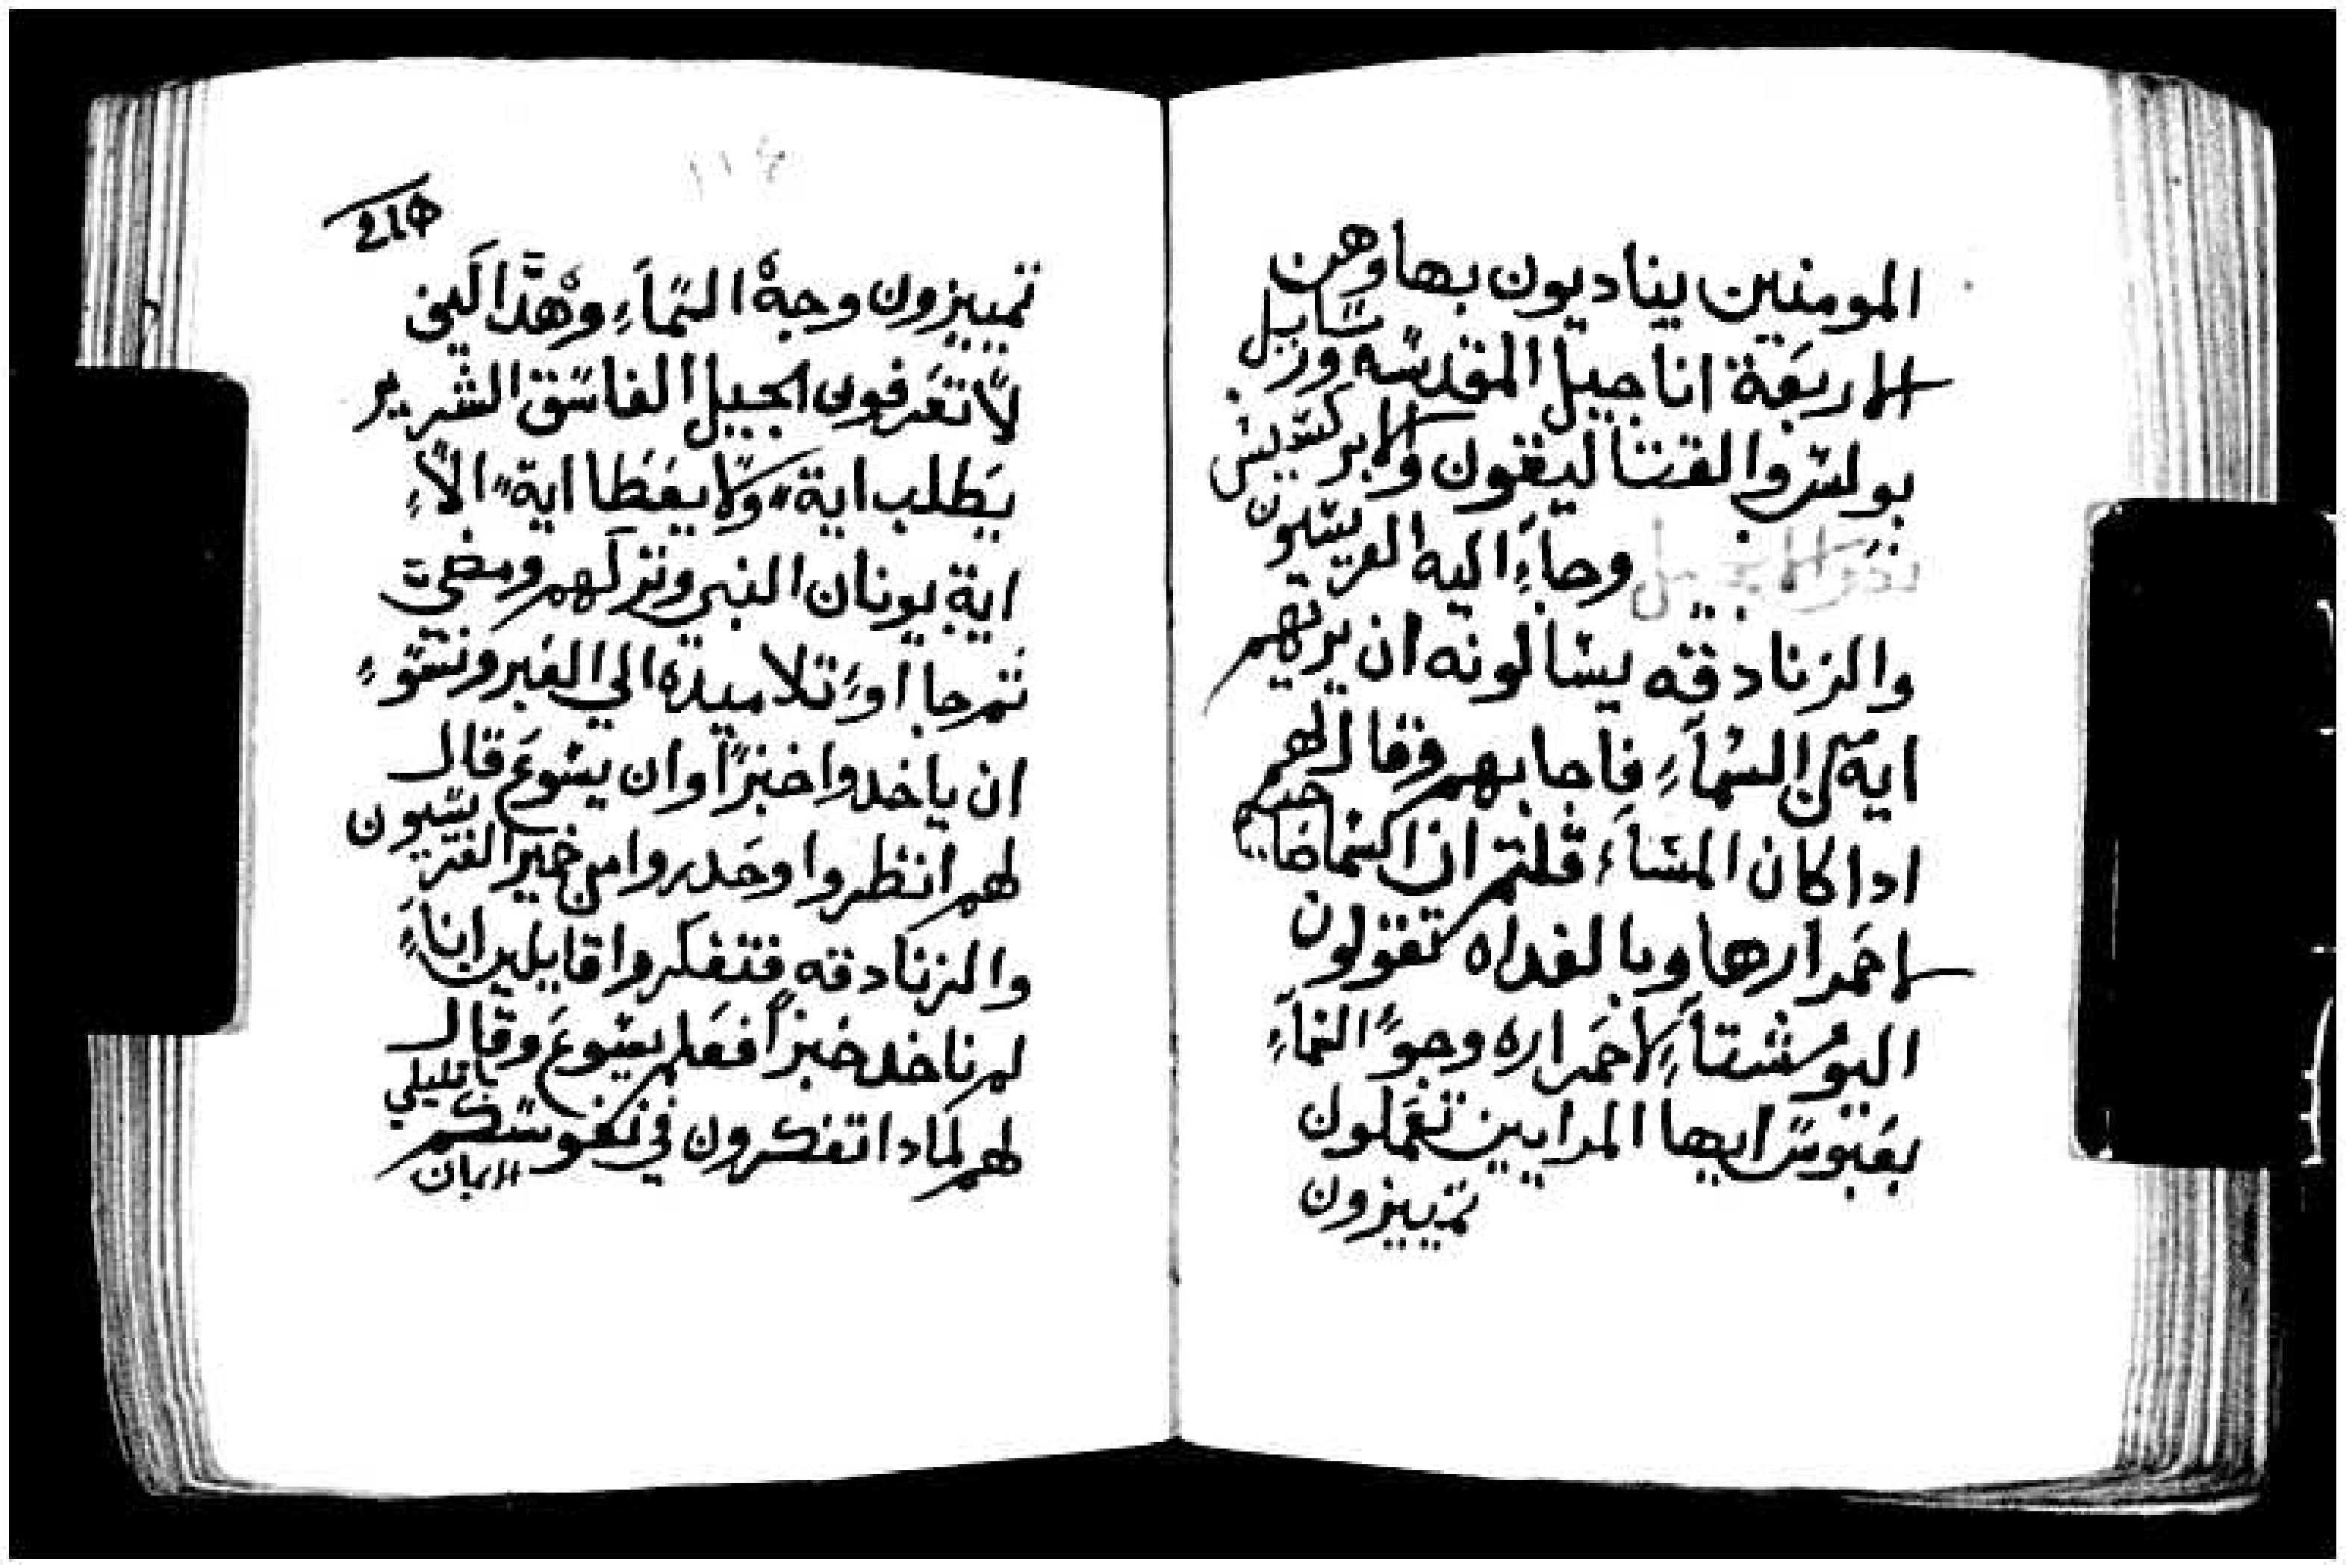 المومنين يناديون بها وهن
الاربعة اناجيل المقدسه ورسايل
بولس والقتاليقون والابركسيس
وجاء اليه الفريسيون
والزنادقه يسالونه ان يريهم
ايه من السماء فاجابهم وقال لهم
ادا كان المساء قلتم ان السما صاحيه
لاحمرارها وبالغداه تقولون
اليوم شتاء لاحمراره وجو السماء
بعبوس ايها المرايين تعملون
تمييزون
تمييزون وجه السماء وهدا
لا تعرفون الجيل الفاسق الشرير
يطلب اية ولا يعطا اية الا
اية يونان النبي وتركهم ومضي
ثم جااو تلاميده الي العبر ونسو
ان ياخدوا خبزا وان يسوع قال
لهم انظروا وحدروا من خمير الفريسيون
والزنادقه فتفكروا قايلين اننا
لم ناخد خبزا فعلم يسوع وقال
لهم لمادا تفكرون في نفوسكم ياقليلي
الايمان